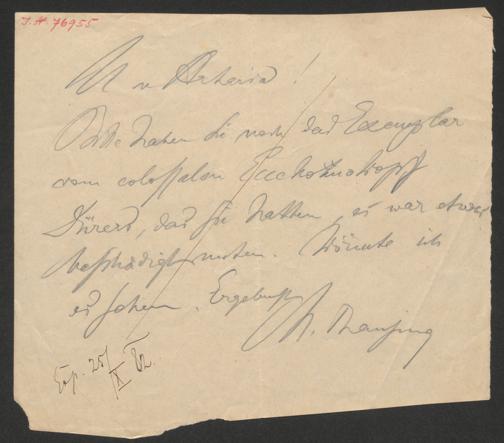 J.N. 76955
H v Artaria!
Bitte haben Sie noch das Exemplar
vom colossalen
Dürers, das Sie hatten, es war etwas
beschädigt unten. Könnte ich
es sehen. Ergebenst
M. Thausing
Exp. 25/IX 82